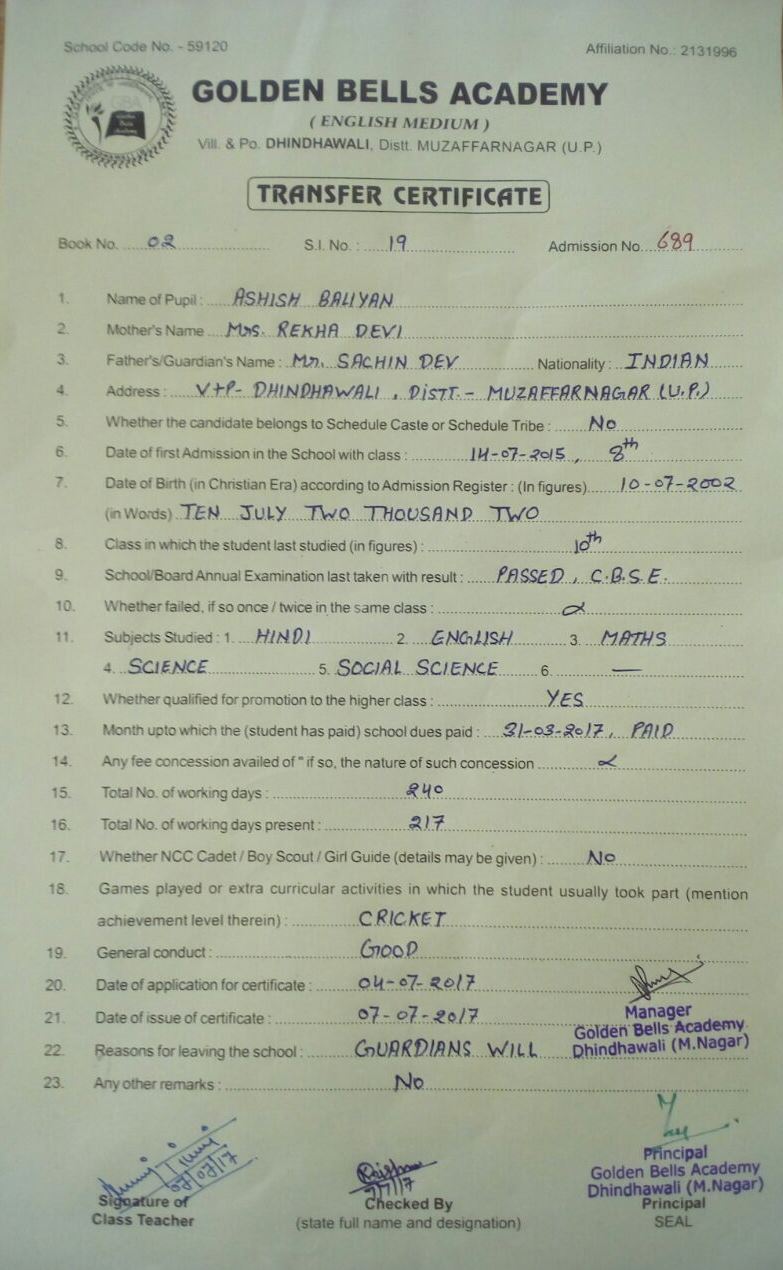 School Code No. - 59120 Affiliation No.: 2131996
GOLDEN BELLS ACADEMY
( ENGLISH MEDIUM )
Vill. & Po. DHINDHAWALI, Distt. MUZAFFARNAGAR (U.P.)
TRANSFER CERTIFICATE
Book No. 02 S.I. No. : 19 Admission No. 689
1. Name of Pupil : ASHISH BALIYAN
2. Mother's Name Mrs. REKHA DEVI
3. Father's/Guardian's Name : Mr. SACHIN DEV Nationality : INDIAN
4. Address : V+P- DHINDHAWALI, DISTT.- MUZAFFARNAGAR (U.P.)
5. Whether the candidate belongs to Schedule Caste or Schedule Tribe : NO
6. Date of first Admission in the School with class : 14-07-2015, 8th
7. Date of Birth (in Christian Era) according to Admission Register : (In figures) 10-07-2002
(in Words) TEN JULY TWO THOUSAND TWO
8. Class in which the student last studied (in figures) : 10th
9. School/Board Annual Examination last taken with result : PASSED, C.B.S.E.
10. Whether failed, if so once / twice in the same class :
11. Subjects Studied : 1. HINDI 2. ENGLISH 3. MATHS
4. SCIENCE 5. SOCIAL SCIENCE 6. —
12. Whether qualified for promotion to the higher class : YES
13. Month upto which the (student has paid) school dues paid : 31-03-2017, PAID
14. Any fee concession availed of " if so, the nature of such concession
15. Total No. of working days : 240
16. Total No. of working days present : 217
17. Whether NCC Cadet / Boy Scout / Girl Guide (details may be given) : NO
18. Games played or extra curricular activities in which the student usually took part (mention
achievement level therein) : CRICKET
19. General conduct : GOOD
20. Date of application for certificate : 04-07-2017
21. Date of issue of certificate : 07-07-2017
Manager
Golden Bells Academy
22. Reasons for leaving the school : GUARDIANS WILL Dhindhawali (M.Nagar)
23. Any other remarks : NO
07/07/17
7/7/17
Signature of
Class Teacher
Checked By
(state full name and designation)
Principal
Golden Bells Academy
Dhindhawali (M.Nagar)
Principal
SEAL